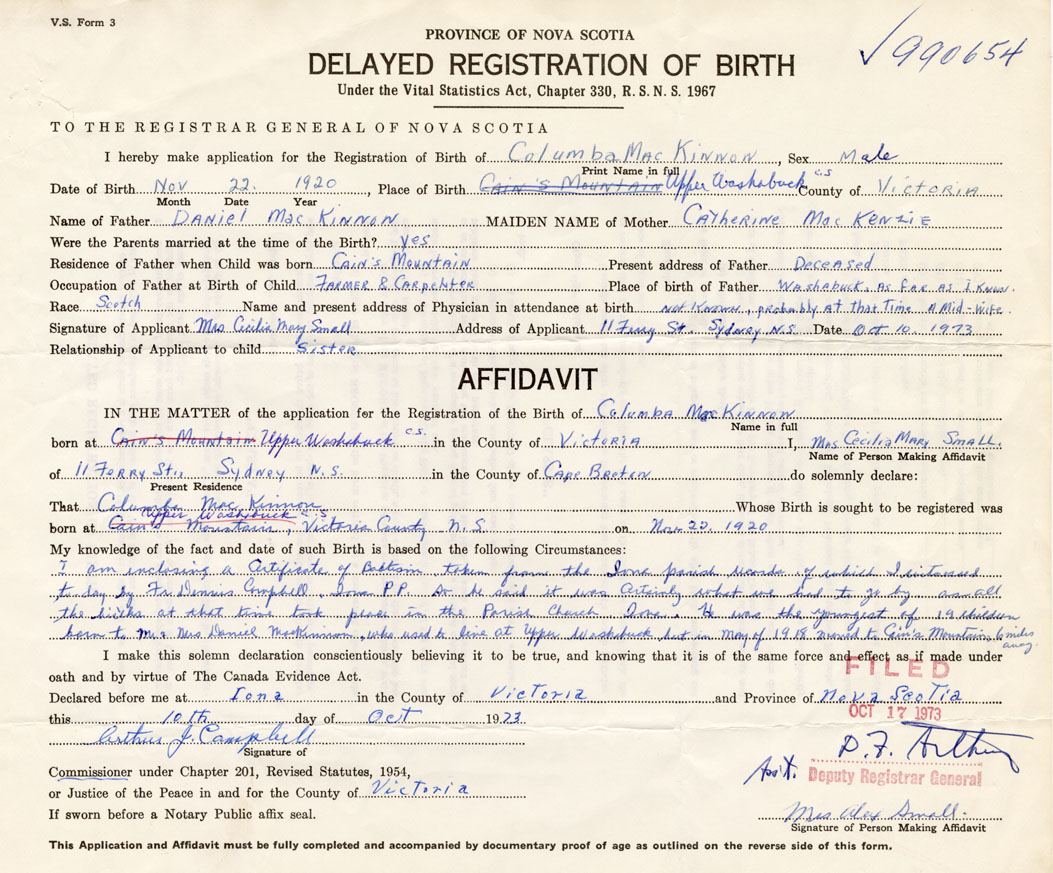 V.S. Form 3
PROVINCE OF NOVA SCOTIA
✓990654
DELAYED REGISTRATION OF BIRTH
Under the Vital Statistics Act, Chapter 330, R.S.N.S. 1967
TO THE REGISTRAR GENERAL OF NOVA SCOTIA
I hereby make application for the Registration of Birth of Columba Mac Kinnon, Sex Male
Print Name in full
Date of Birth Nov 22. 1920, Place of Birth Cain's Mountain Upper Washabuck C.S County of Victoria
Month Date Year
Name of Father Daniel Mac Kinnon MAIDEN NAME of Mother Catherine Mac Kenzie
Were the Parents married at the time of the Birth? yes
Residence of Father when Child was born Cain's Mountain Present address of Father Deceased
Occupation of Father at Birth of Child Farmer & Carpenter Place of birth of Father Washabuck, as far as I know.
Race Scotch Name and present address of Physician in attendance at birth not known, probably at that time a Mid-wife.
Signature of Applicant Mrs Cecilia May Small Address of Applicant 11 Ferry St. Sydney N.S. Date Oct 10. 1973
Relationship of Applicant to child Sister
AFFIDAVIT
IN THE MATTER of the application for the Registration of the Birth of Columba Mac Kinnon
Name in full
born at Cain's Mountain Upper Washabuck C.S. in the County of Victoria I, Mrs Cecilia Mary Small.
Name of Person Making Affidavit
of 11 Ferry St., Sydney N.S. in the County of Cape Breton do solemnly declare:
Present Residence
That Columba Mac Kinnon Whose Birth is sought to be registered was
Upper Washabuck C.S
born at Cain's Mountain, Victoria County N.S on Nov. 22. 1920
My knowledge of the fact and date of such Birth is based on the following Circumstances:
I am inclosing a Certificate of Baptism taken from the Iona parish records of which I witnessed
to day by Fr. Dennis Campbell Iona P.P. So he said it was certainly what we had to go by as all
the births at that time took place in the Parish Church Iona. He was the youngest of 12 children
born to Mr & Mrs Daniel MacKinnon, who used to live at Upper Washabuck but in May of 1918 moved to Cain's Mountain, 6 miles
away.
I make this solemn declaration conscientiously believing it to be true, and knowing that it is of the same force and effect as if made under
oath and by virtue of The Canada Evidence Act.
FILED
Declared before me at Iona in the County of Victoria and Province of Nova Scotia
OCT 17 1973
this 10th day of Oct 1973
Arthur J. Campbell
Signature of
D.F.
Commissioner under Chapter 201, Revised Statutes, 1954,
Ass't. Deputy Registrar General
or Justice of the Peace in and for the County of Victoria
If sworn before a Notary Public affix seal.
Mrs Alex Small
Signature of Person Making Affidavit
This Application and Affidavit must be fully completed and accompanied by documentary proof of age as outlined on the reverse side of this form.